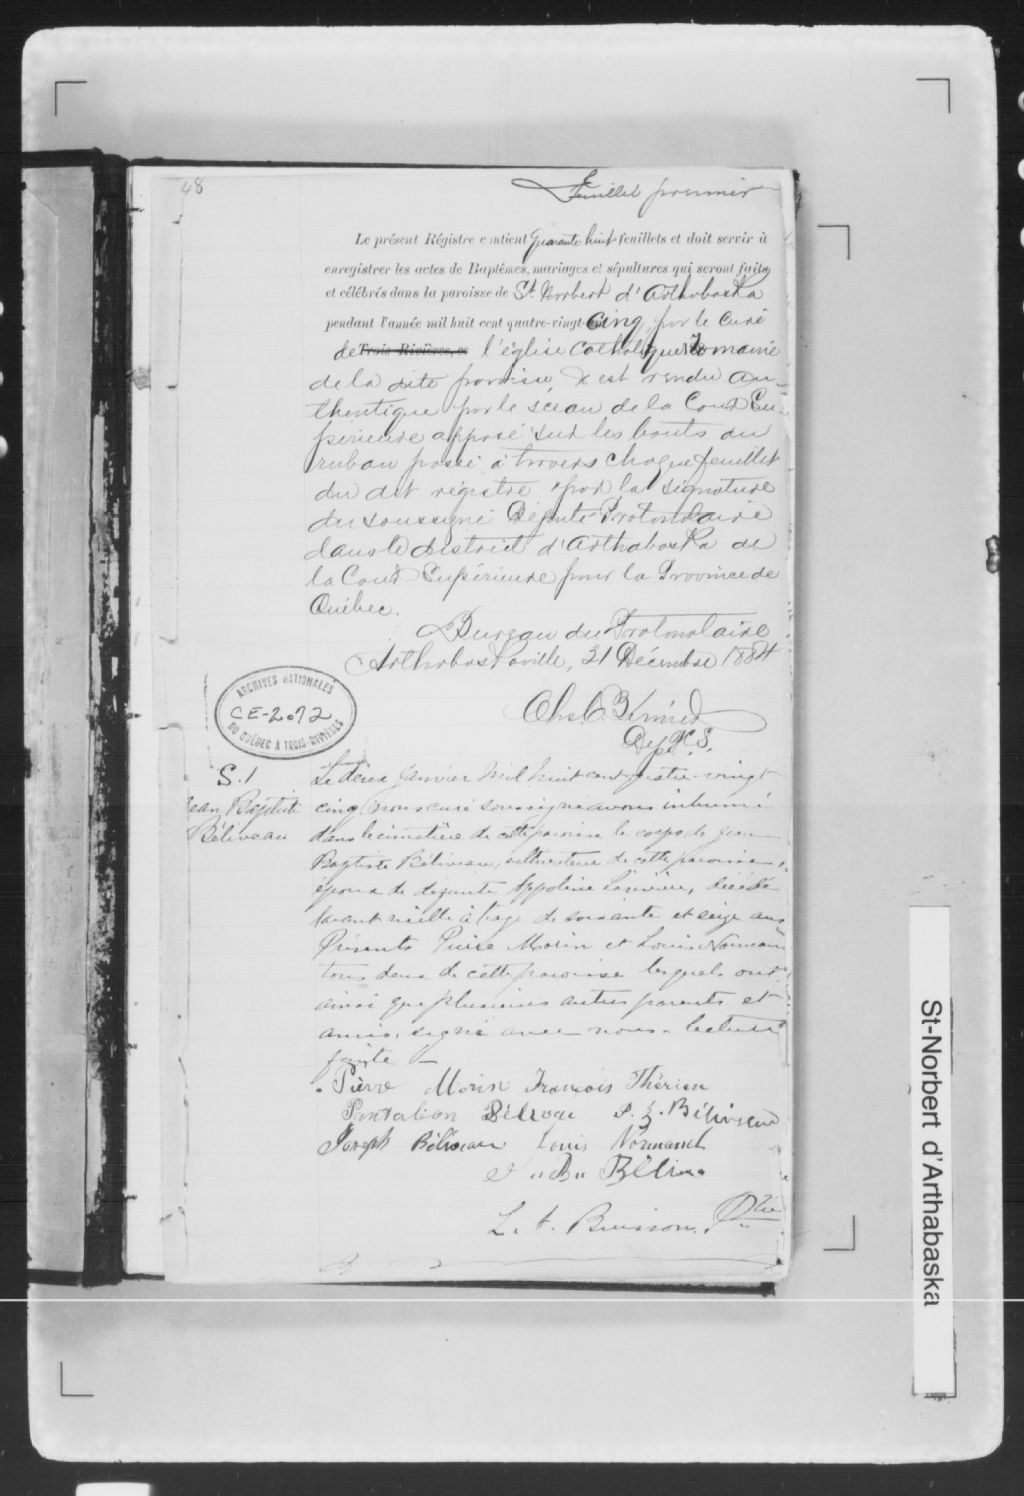 48
Feuillet premier
Le présent Régistre contient Quarante huit feuillets et doit servir à
enregistrer les actes de Baptêmes, mariages et sépultures qui seront faits
et célébrés dans la paroisse de St Norbert d'Arthabaska
pendant l'année mil huit cent quatre-vingt-cinq, par le curé
de Trois-Rivières, l'église Catholique Romaine
de la dite paroisse, & est rendu au-
thentique par le sceau de la Cour Su-
périeure apposé sur les bouts du
ruban passé à travers chaque feuillet
du dit régistre, par la signature
du soussigné Député-Protonotaire
dans le district d'Arthabaska de
la Cour Supérieure pour la Province de
Québec.
Bureau du Protonotaire
Arthabaskaville, 31 Décembre 1884
Chs
Dep. P.C.S.
ARCHIVES NATIONALES
CE-2.72
DU QUÉBEC À TROIS-RIVIÈRES
S. 1
Jean Baptiste
Béliveau
Le deux Janvier mil huit cent quatre-vingt
cinq nous curé soussigné avons inhumé
dans le cimetière de cette paroisse le corps de Jean
Baptiste Béliveau, cultivateur de cette paroisse,
époux de défunte Appoline, décédé
l'avant veille à l'âge de soixante et seize ans
Présents Pierre Morin et Louis Normand
tous deux de cette paroisse lesquels ont
ainsi que plusieurs autres parents et
amis, signé avec nous. lecture
faite
Pierre Morin François Thérien
Pantaléon Béliveau P. Z. Béliveau
Joseph Béliveau Louis Normand
J. B. Béliveau
L. A. Buisson, Ptre
St-Norbert d'Arthabaska